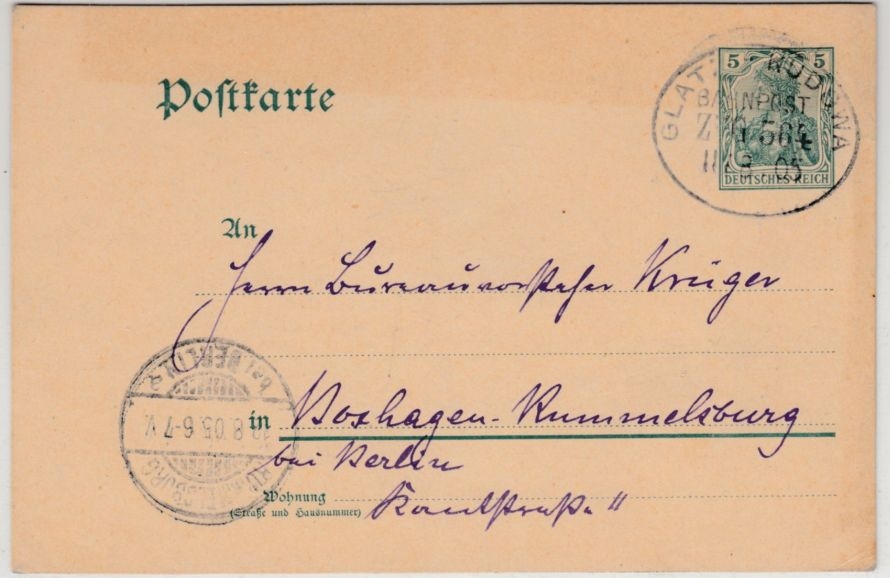 Postkarte
5 5
DEUTSCHES REICH
GLATZ KUDOWA
BAHNPOST
ZUG 564
11 8 05
An
Herrn Bureauvorsteher Krüger
in Boxhagen-Rummelsburg
bei Berlin
Wohnung
(Straße und Hausnummer)
Kantstraße 11
RUMMELSBURG
12.8.05.6-7.V.
bei BERLIN